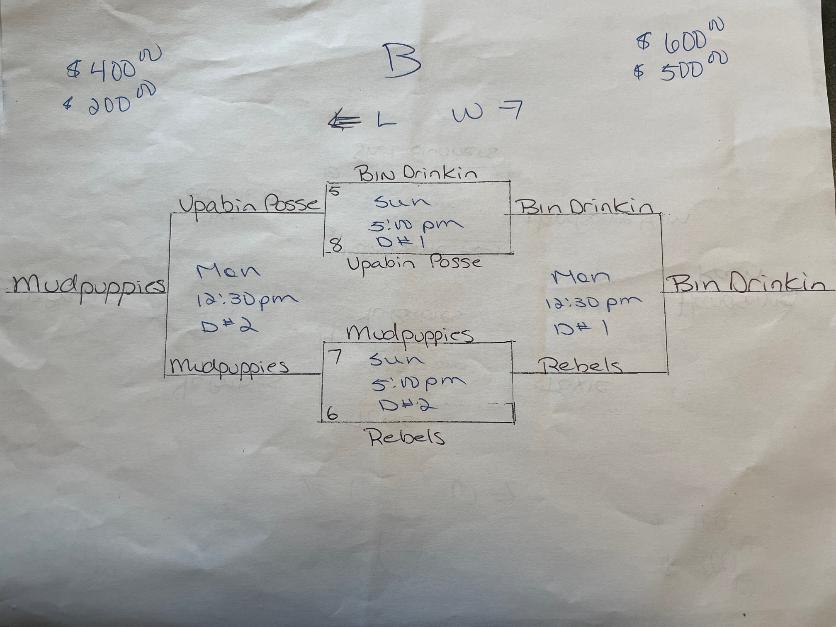 $ 400.00
$ 200.00
B
$ 600.00
$ 500.00
← L W →
Bin Drinkin
5
Sun
5:00 pm
D#1
8
Upabin Posse
Upabin Posse
Bin Drinkin
Mudpuppies
Mon
12:30pm
D#2
Mon
12:30 pm
D#1
Bin Drinkin
Mudpuppies
7
Sun
5:00pm
D#2
6
Rebels
Mudpuppies
Rebels